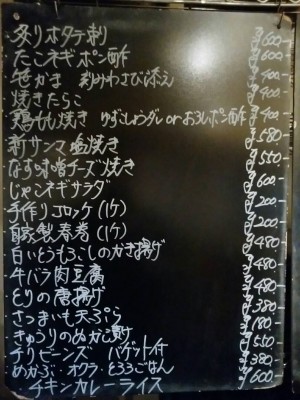 炙りホタテ刺 ¥600-
たこネギポン酢 ¥600-
笹かま 刻みわさび添え ¥400-
焼きたらこ ¥400-
鶏もも焼き ゆずこしょうダレ or おろしポン酢 ¥400-
新サンマ塩焼き ¥580-
なす味噌チーズ焼き ¥550-
じゃこネギサラダ ¥600-
手作りコロッケ(1ケ) ¥200-
自家製春巻(1ケ) ¥200-
白いとうもろこしのかき揚げ ¥480-
牛バラ肉豆腐 ¥480-
とりの唐揚げ ¥480-
さつまいも天ぷら ¥380-
きゅうりのぬか漬け ¥180-
チリビーンズ バゲット付 ¥550-
めかぶ・オクラ・とろろごはん ¥380-
チキンカレーライス ¥600-